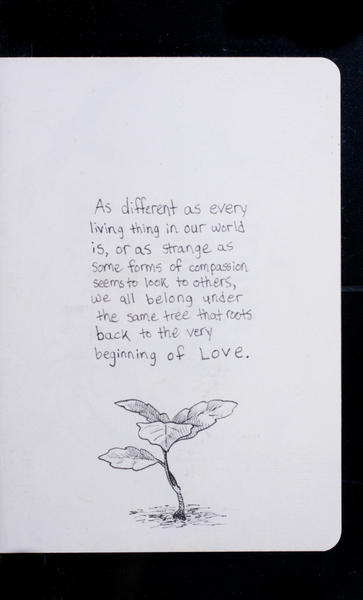 As different as every
living thing in our world
is, or as strange as
some forms of compassion
seems to look to others,
we all belong under
the same tree that roots
back to the very
beginning of Love.